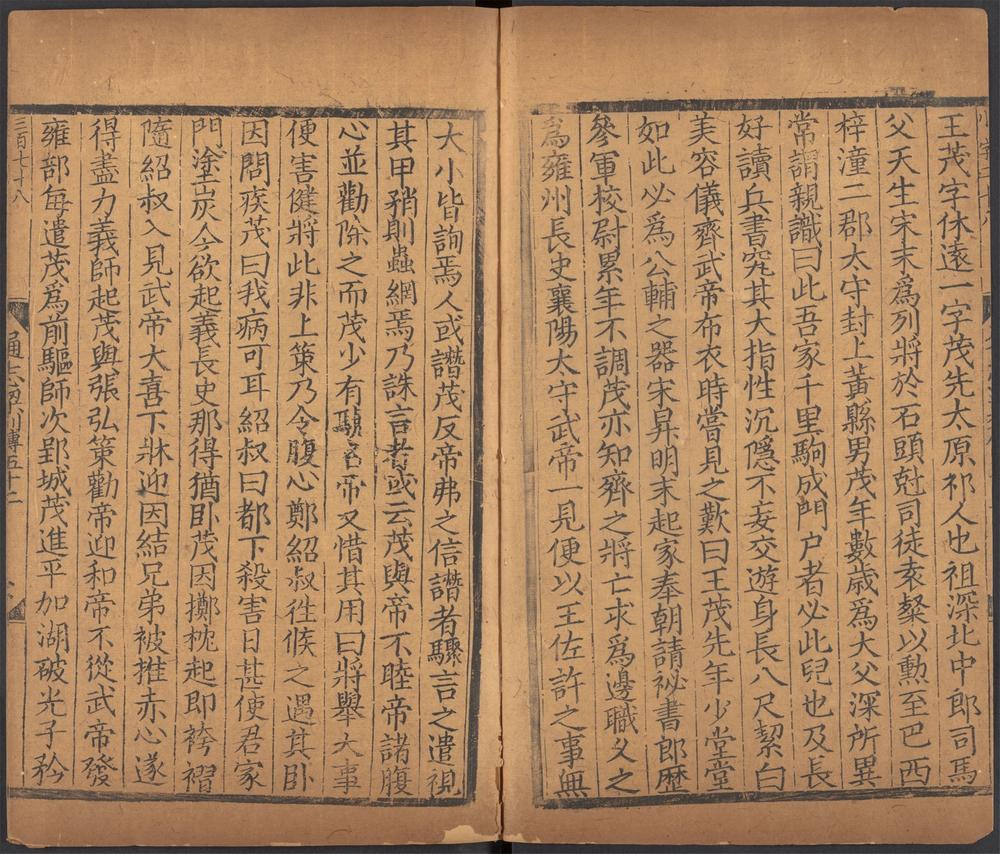 王茂字休遠一字茂先太原祁人也祖深北中郎司馬
父天生宋末爲列將於石頭尅司徒袁粲以勲至巴西
梓潼二郡太守封上黃縣男茂年數歲爲大父深所異
常謂親識曰此吾家千里駒成門户者必此兒也及長
好讀兵書究其大指性沉隱不妄交遊身長八尺絜白
美容儀齊武帝布衣時嘗見之歎曰王茂先年少堂堂
如此必爲公輔之器宋昇明末起家奉朝請祕書郎歷
參軍校尉累年不調茂亦知齊之將亡求爲邊職乆之
爲雍州長史襄陽太守武帝一見便以王佐許之事無
大小皆詢焉人或譖茂反帝弗之信譖者驟言之遣視
其甲矟則蟲網焉乃誅言者或云茂與帝不睦帝諸腹
心並勸除之而茂少有驍名帝又惜其用曰將舉大事
便害健將此非上策乃令腹心鄭紹叔徃候之遇其卧
因問疾茂曰我病可耳紹叔曰都下殺害日甚使君家
門塗炭今欲起義長史那得猶卧茂因擲枕起即袴褶
隨紹叔入見武帝大喜下牀迎因結兄弟被推赤心遂
得盡力義師起茂與張弘策勸帝迎和帝不從武帝發
雍部每遣茂爲前驅師次郢城茂進平加湖破光子衿
三百七十八
通志列傳五十二